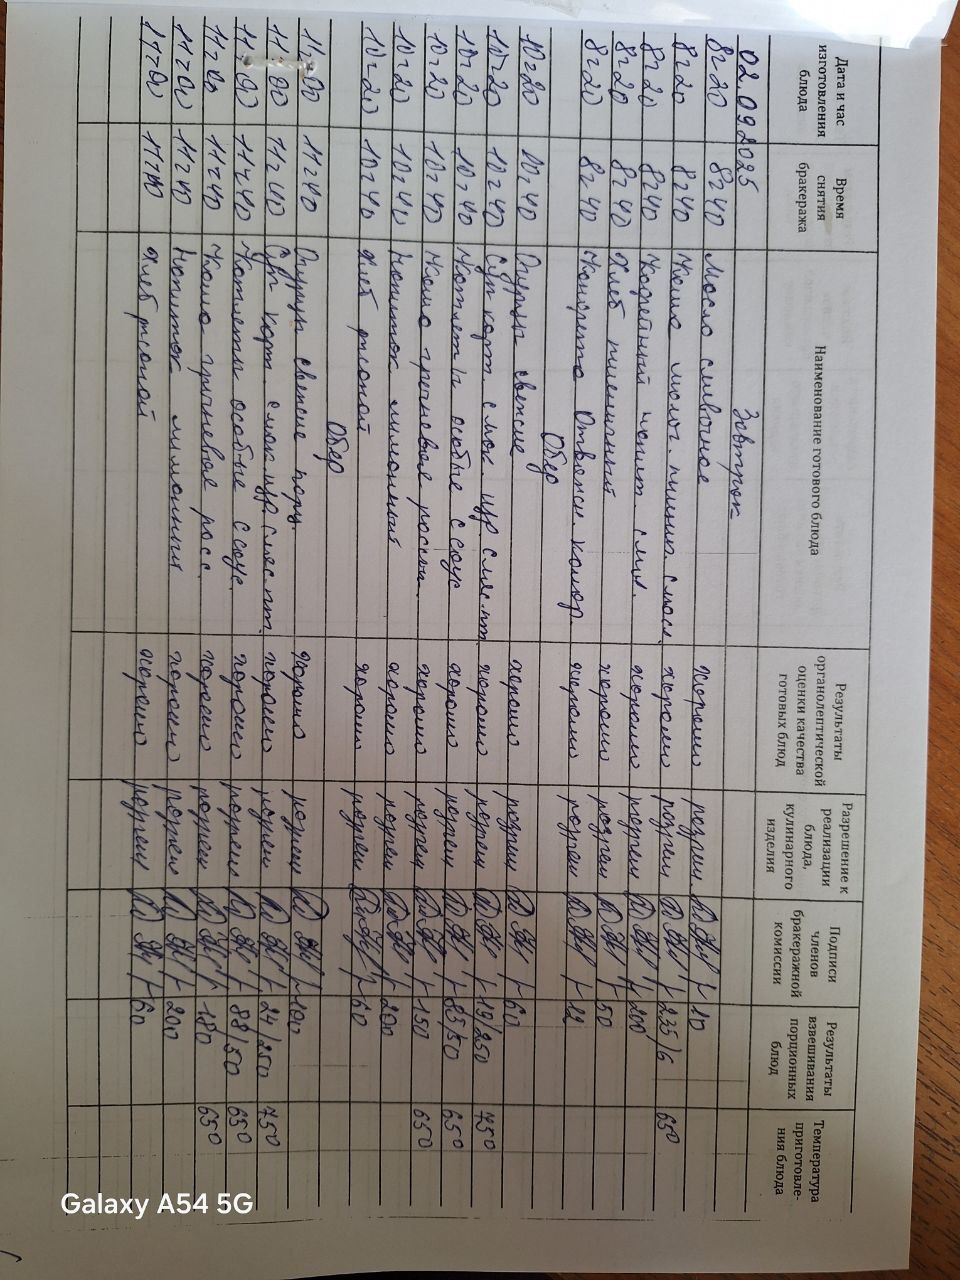 Дата и час изготовления блюда | Время снятия бракеража | Наименование готового блюда | Результаты органолептической оценки качества готовых блюд | Разрешение к реализации блюда, кулинарного изделия | Подписи членов бракеражной комиссии | Результаты взвешивания порционных блюд | Температура приготовления блюда
02.09.2025 Завтрак
8:20 8:40 Масло сливочное хорошо разреш. 10
8:20 8:40 Каша молоч. пшенн. с масл. хорошо разреш 235/6 65°
8:20 8:40 Кофейный напит. хорошо разреш 200
8:20 8:40 Хлеб пшеничный хорошо разреш 50
8:20 8:40 Конфета хорошо разреш 22
Обед
10:20 10:40 Огурцы свежие хорошо разреш 60
10:20 10:40 Суп карт. с мак. изд. с мяс. пт. хорошо разреш 19/250 75°
10:20 10:40 Котлеты особые с соус хорошо разреш 65°
10:20 10:40 Каша гречневая рассып. хорошо разреш 150 65°
10:20 10:40 Напиток лимонный хорошо разреш 200
10:20 10:40 Хлеб ржаной хорошо разреш 60
Обед
11:20 11:40 Огурцы свежие порц. хорошо разреш 100
11:20 11:40 Суп карт. с мак. изд. с мяс. пт. хорошо разреш 24/250 75°
11:20 11:40 Котлеты особые с соус. хорошо разреш 88/50 65°
11:20 11:40 Каша гречневая расс. хорошо разреш 180 65°
11:20 11:40 Напиток лимонный хорошо разреш 200
11:20 11:40 Хлеб ржаной хорошо разреш 60
Galaxy A54 5G